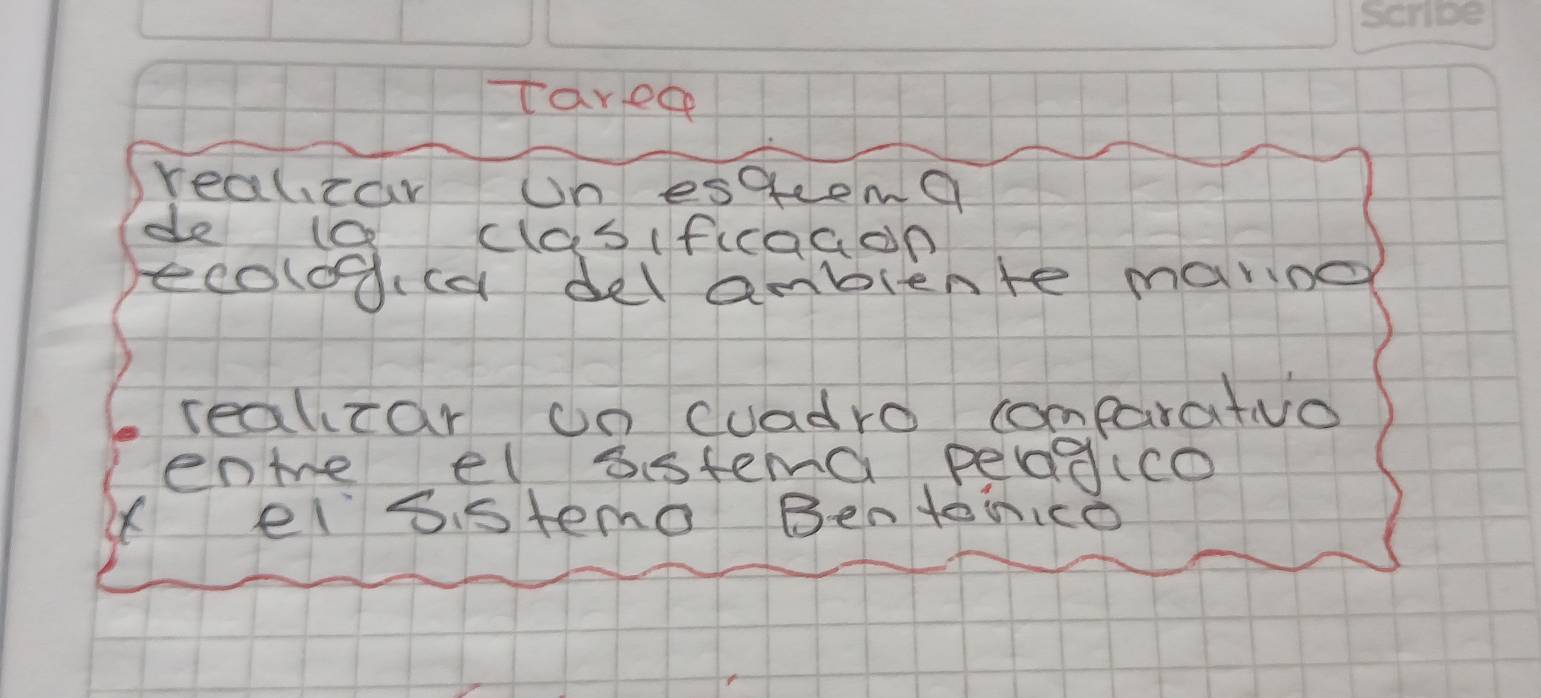 Scribe
Tarea
realizar un esquema
de la clasificacion
ecologica del ambiente marino
realizar un cuadro comparativo
entre el sistema pelagico
y el sistema Bentónico